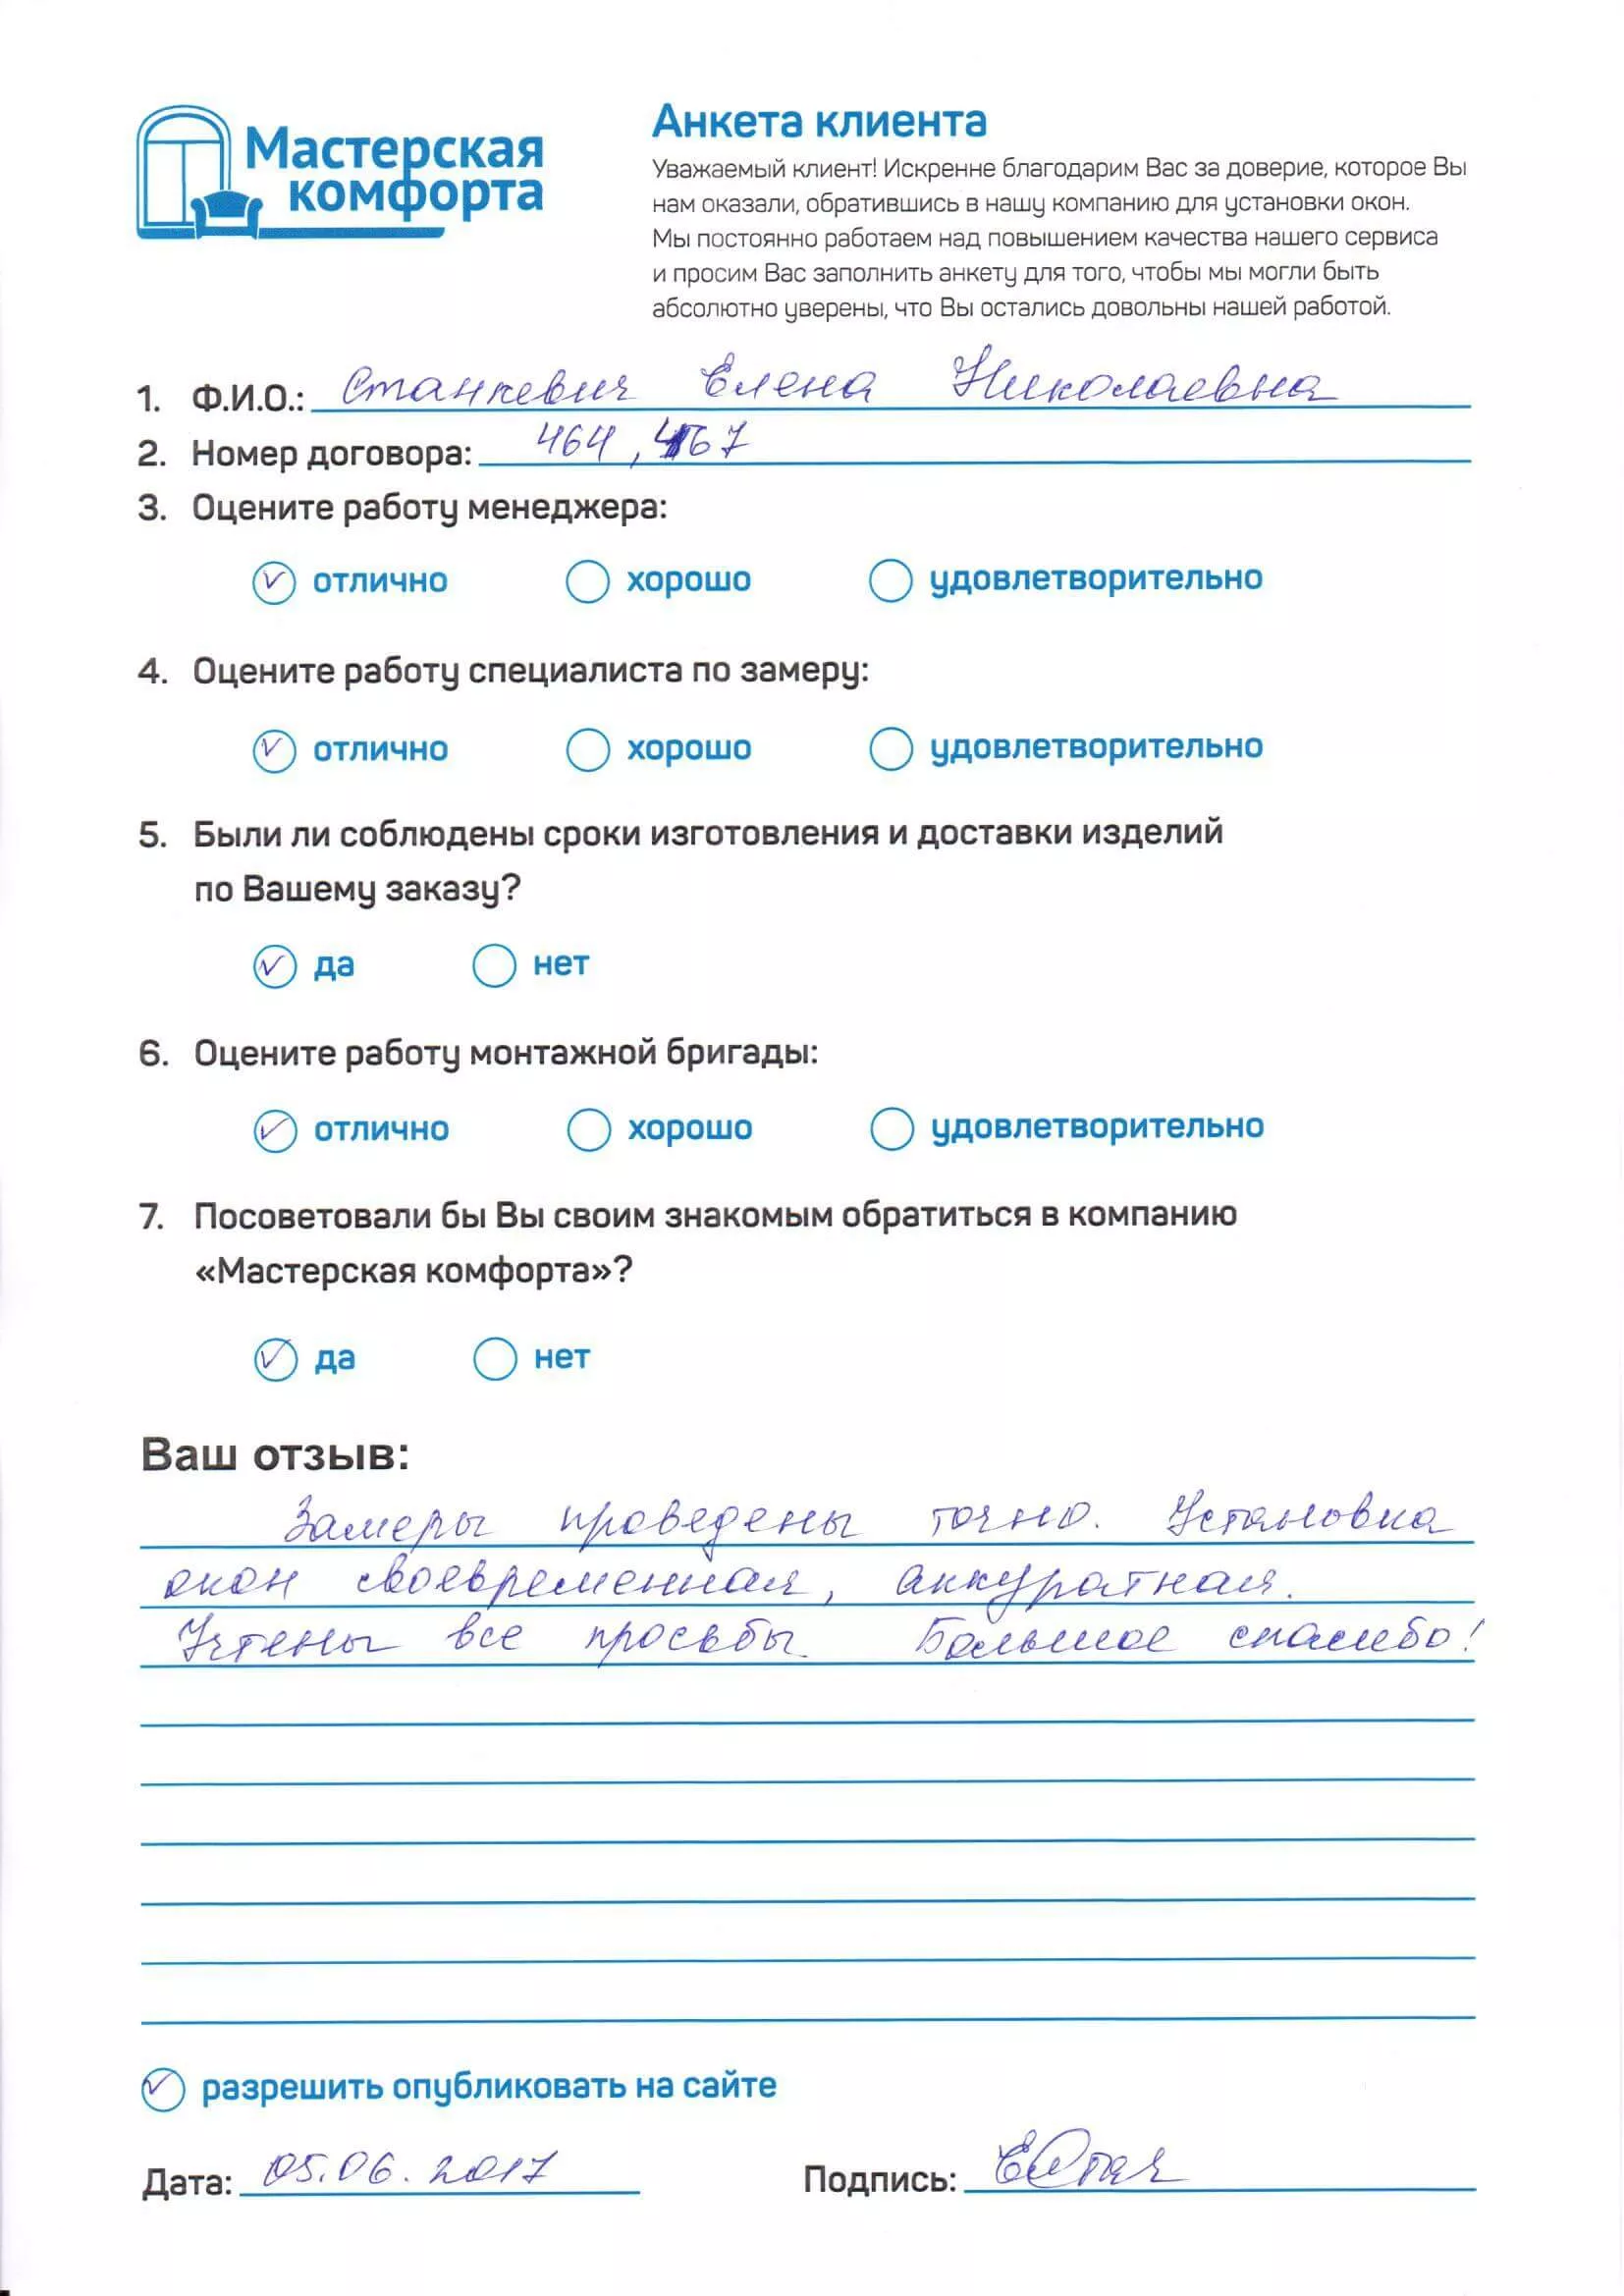 Мастерская
комфорта
Анкета клиента
Уважаемый клиент! Искренне благодарим Вас за доверие, которое Вы
нам оказали, обратившись в нашу компанию для установки окон.
Мы постоянно работаем над повышением качества нашего сервиса
и просим Вас заполнить анкету для того, чтобы мы могли быть
абсолютно уверены, что Вы остались довольны нашей работой.
1. Ф.И.О.: Станкевич Елена Николаевна
2. Номер договора: 464, 467
3. Оцените работу менеджера:
отлично хорошо удовлетворительно
4. Оцените работу специалиста по замеру:
отлично хорошо удовлетворительно
5. Были ли соблюдены сроки изготовления и доставки изделий
по Вашему заказу?
да нет
6. Оцените работу монтажной бригады:
отлично хорошо удовлетворительно
7. Посоветовали бы Вы своим знакомым обратиться в компанию
«Мастерская комфорта»?
да нет
Ваш отзыв:
Замеры проведены точно. Установка
окон своевременная, аккуратная.
Учтены все просьбы Большое спасибо!
разрешить опубликовать на сайте
Дата: 05.06.2017 Подпись: